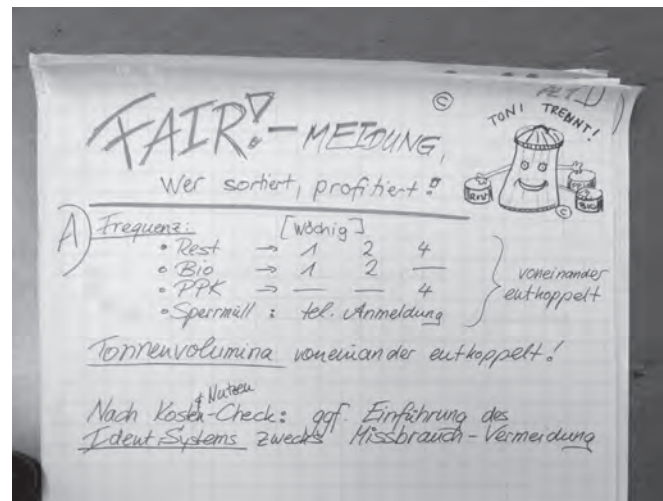 ALT_D
©
TONI TRENNT!
FAIR!-MEIDUNG,
Wer sortiert, profitiert!
BIO
©
A) Frequenz: [Wöchig]
• Rest → 1 2 4
• Bio → 1 2 —
• PPK → — — 4
• Sperrmüll : tel. Anmeldung
voneinander
entkoppelt
Tonnenvolumina voneinander entkoppelt!
& Nutzen
Nach Kosten-Check: ggf. Einführung des
Ident-Systems zwecks Missbrauch-Vermeidung